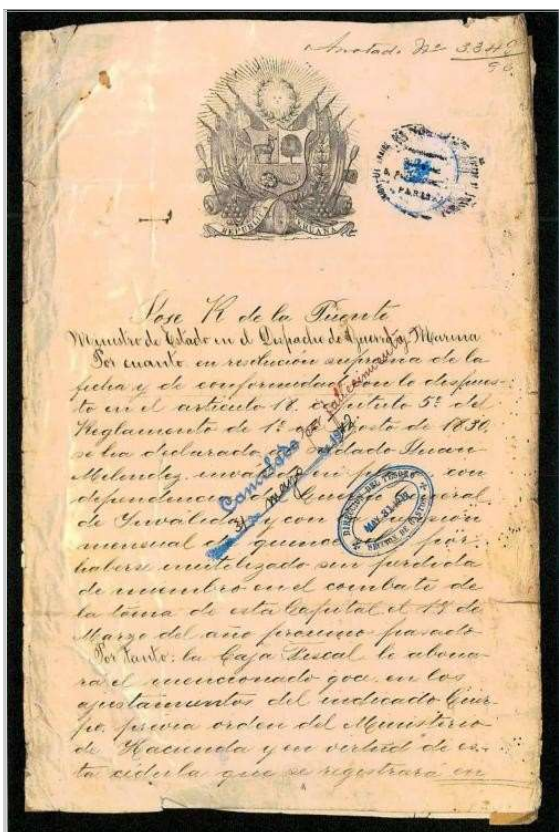 Anotado Nº 3349
REPUBLICA PERUANA
PARIS
Jose R de la Puente
Ministro de Estado en el Despacho de Guerra y Marina
Por cuanto en resolución suprema de la
fecha y de conformidad con lo dispues-
to en el articulo 18. capitulo 5º del
Reglamento de 1º de Agosto de 1830,
se ha declarado soldado Juan
Melendez con
dependencia General
de Invalidos y con
mensual de quince por
haberse inutilizado sin perdida
de miembro en el combate de
la toma de esta Capital el 19 de
Marzo del año proximo pasado
Por tanto: la Caja Fiscal le abona-
rá el mencionado goce en los
ajustamientos del indicado Cuer-
po, previa orden del Ministerio
de Hacienda y en virtud de es-
ta cédula que se registrará en
Cancelado por fallecimiento
31 marzo
DIRECCION DEL TESORO
SECCION DE GASTOS